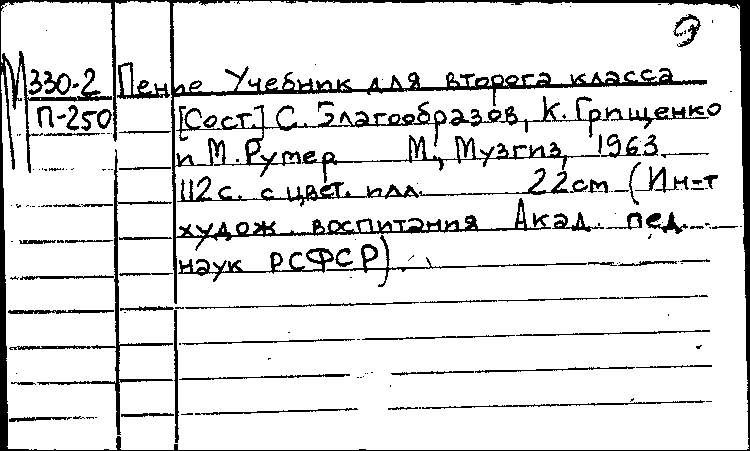 9
М330-2 Пение Учебник для второга класса
П-250 [Сост.] С. Благообразов, К. Грищенко
и М. Рутер М., Музгиз, 1963.
112 с. с цвет. илл. 22 cm (Ин-т
худож. воспитания Акад. пед.
наук РСФСР).